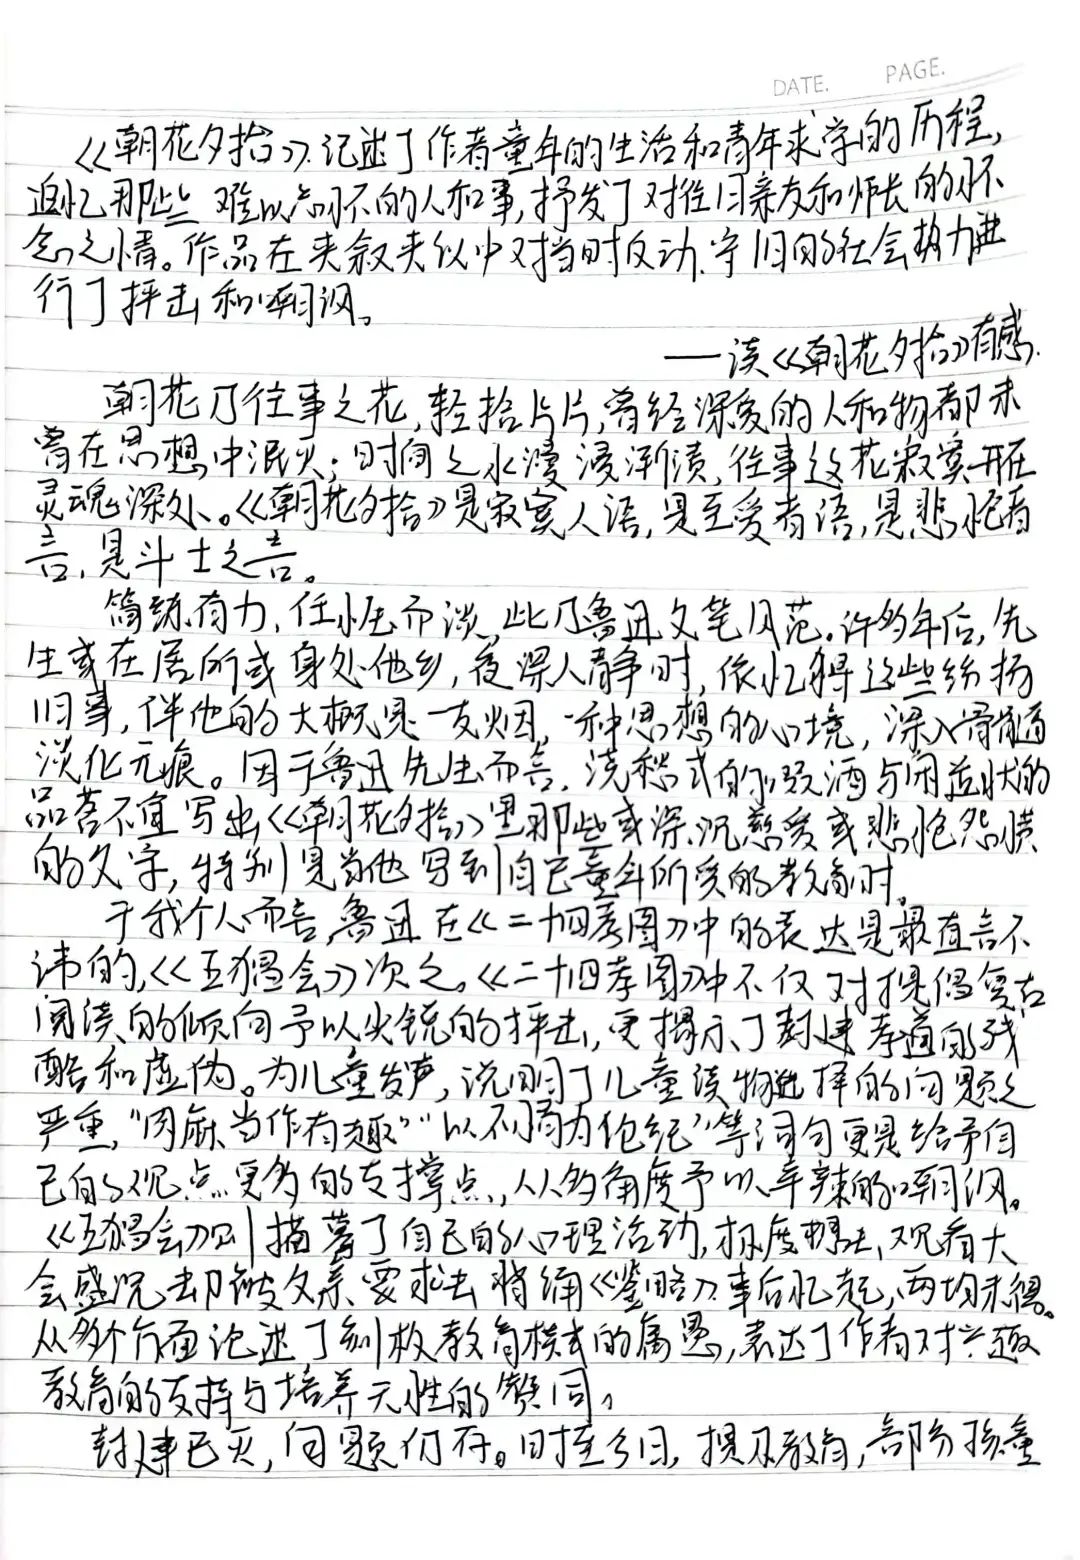 DATE. PAGE.
《朝花夕拾》记述了作者童年的生活和青年求学的历程,
追忆那些难以忘怀的人和事,抒发了对往日亲友和师长的怀
念之情。作品在夹叙夹议中对当时反动、守旧的社会势力进
行了抨击和嘲讽。
——读《朝花夕拾》有感.
朝花乃往事之花,轻拾片片,曾经深爱的人和物都未
曾在思想中泯灭;时间之水漫漫渐渍,往事这花寂寞开在
灵魂深处、。《朝花夕拾》是寂寞人语,是至爱者语,是悲怆者
言,是斗士之言。
简练有力,任性而谈,此乃鲁迅文笔风范。许多年后,先
生或在居所或身处他乡,夜深人静时,依忆得这些纷扬
旧事,伴他的大概是一支烟,一种思想的心境,深入骨髓
淡化无痕。因于鲁迅先生而言,浇愁式的烈酒与闲逸状的
品茗不宜写出《朝花夕拾》里那些或深沉慈爱或悲怆怨愤
的文字,特别是当他写到自己童年所受的教育时。
于我个人而言,鲁迅在《二十四孝图》中的表达是最直言不
讳的,《五猖会》次之。《二十四孝图》中不仅对提倡复古
阅读的倾向予以尖锐的抨击,更揭示了封建孝道的残
酷和虚伪。为儿童发声,说明了儿童读物选择的问题之
严重,“肉麻当作有趣”“以不情为伦纪”等词句更是给予自
己的观点更多的支撑点,从多角度予以辛辣的嘲讽。
《五猖会》则描摹了自己的心理活动,极度想去观看大
会盛况却被父亲要求去背诵《鉴略》事后忆起,两均未得。
从多个方面论述了刻板教育模式的愚,表达了作者对兴趣
教育的支持与培养天性的赞同。
封建已灭,问题仍存。时至今日,提及教育,部分孩童